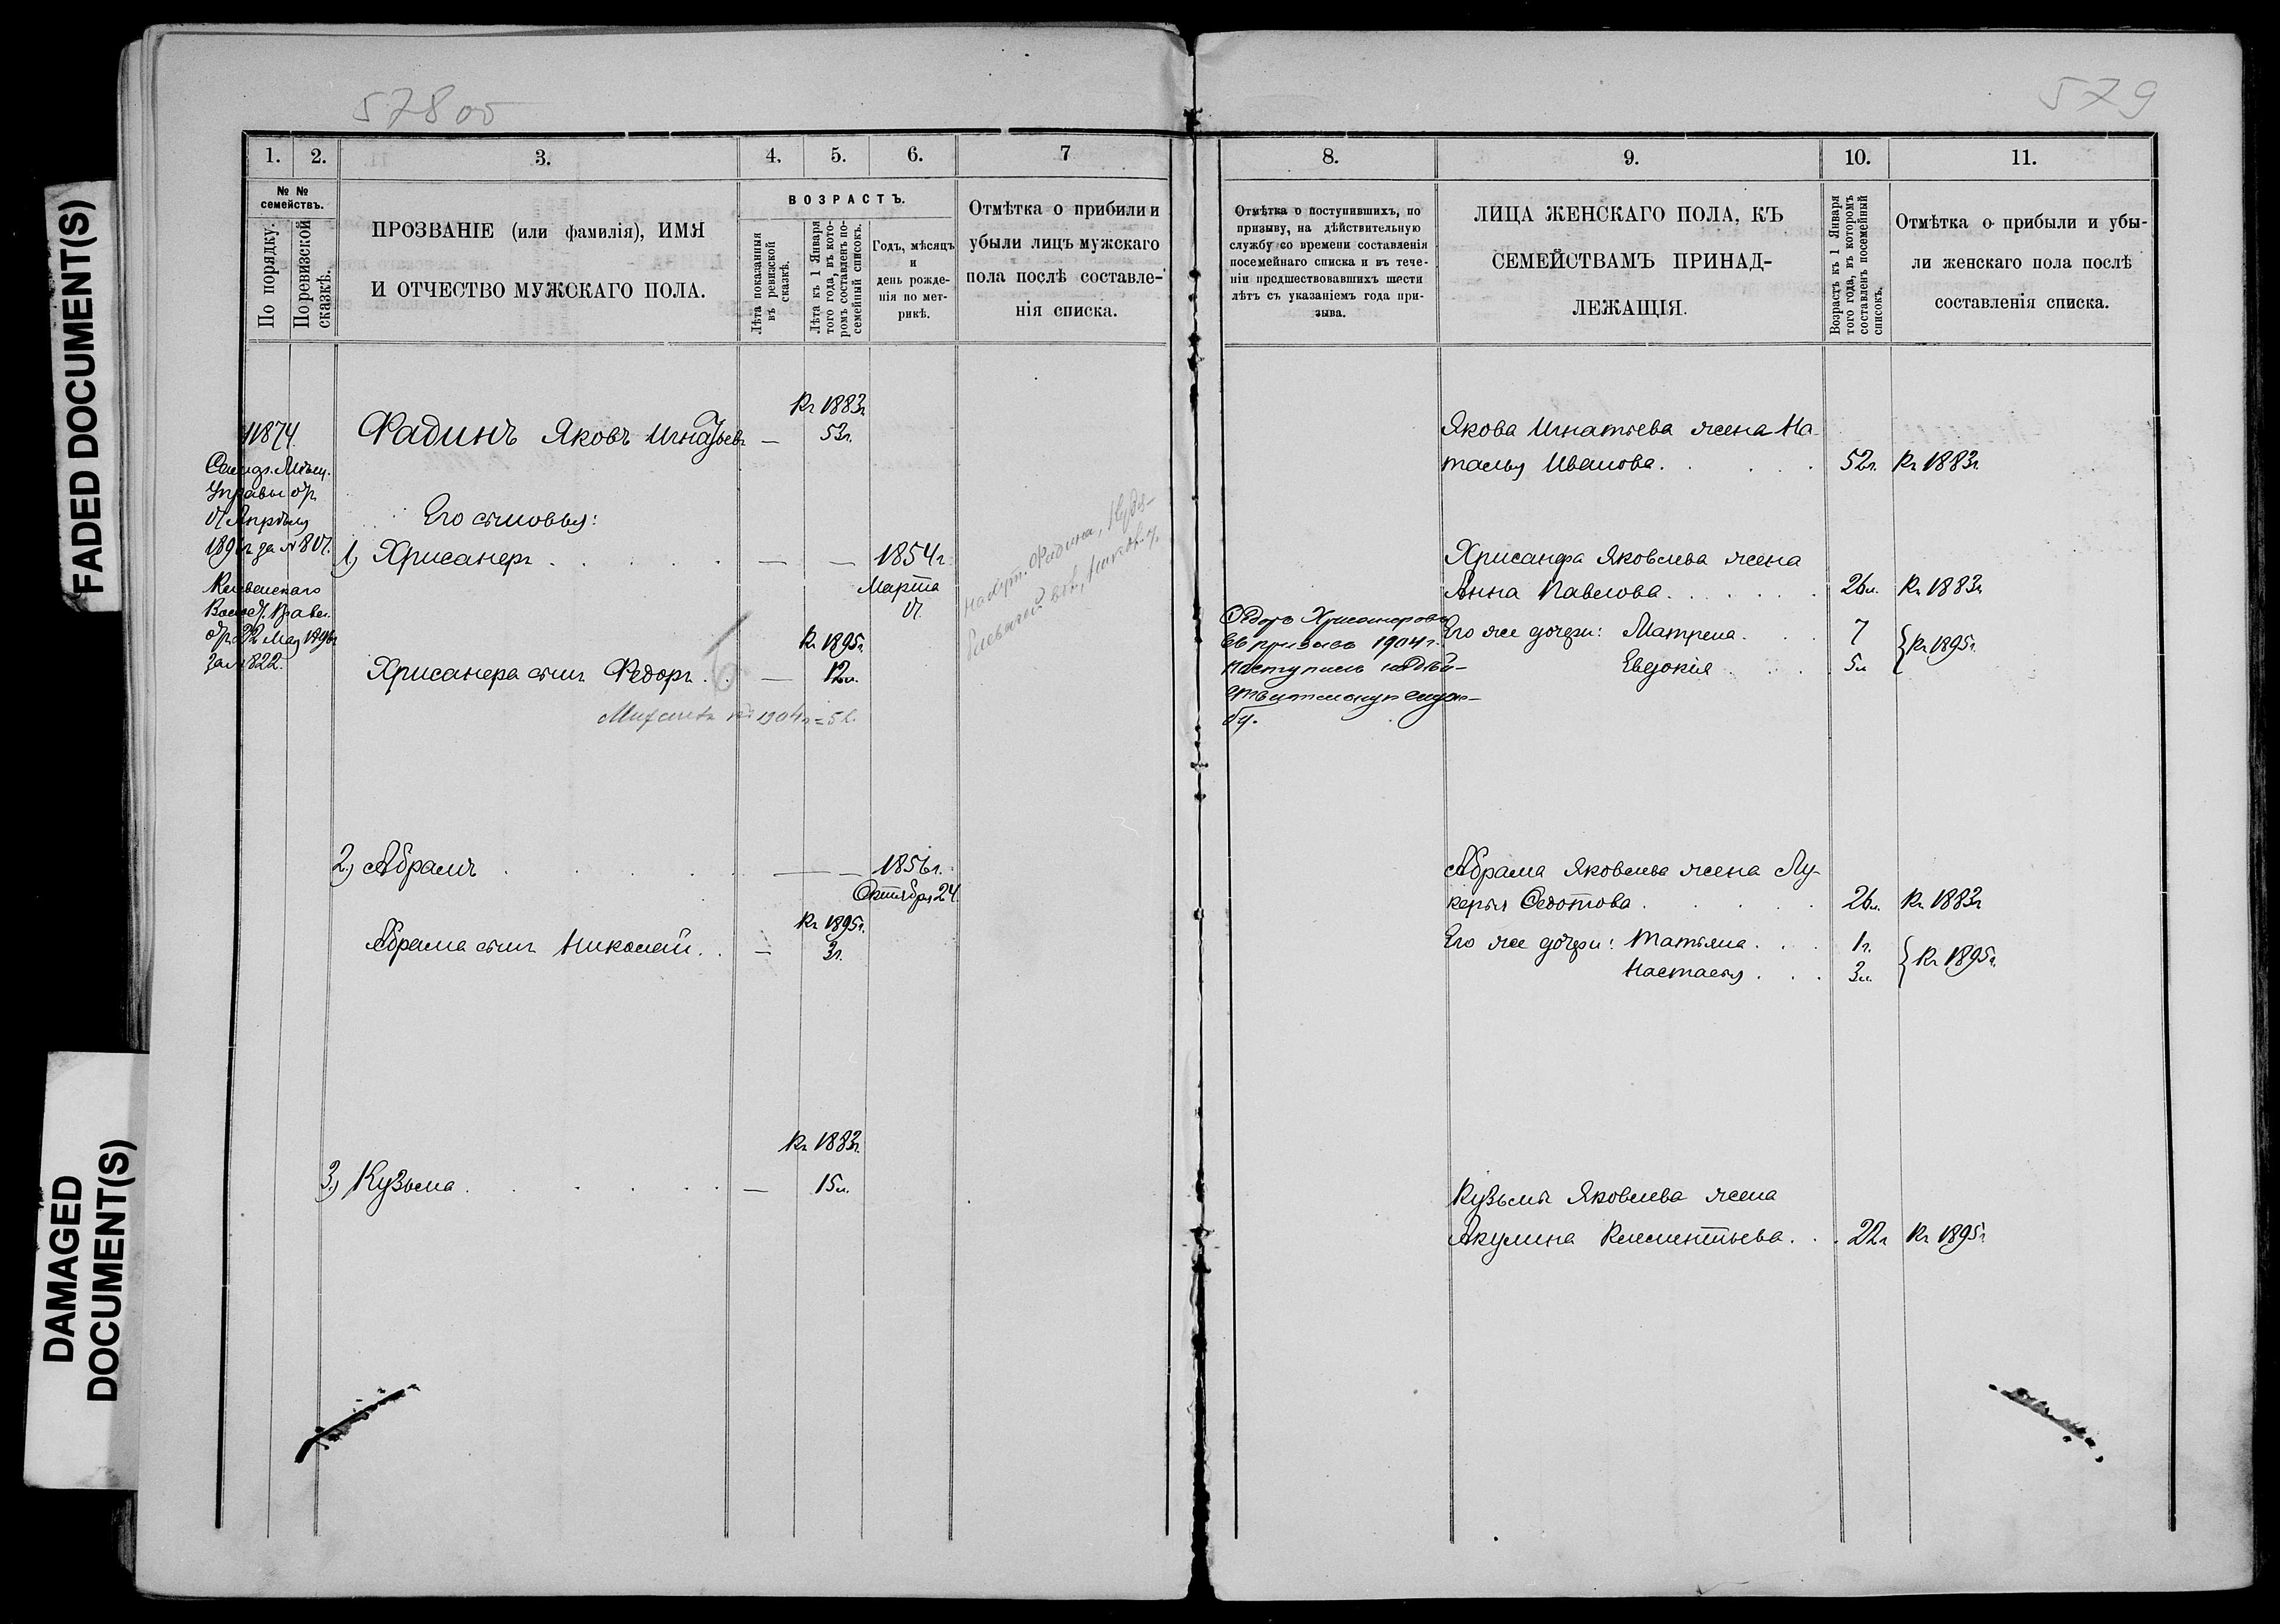 FADED DOCUMENT(S)
DAMAGED
DOCUMENT(S)
578 об
1.
2.
3.
4.
5.
6.
7
№ №
семействъ.
По порядку.
По ревизской
сказкѣ.
ПРОЗВАНІЕ (или фамилія), ИМЯ
И ОТЧЕСТВО МУЖСКАГО ПОЛА.
ВОЗРАСТЪ.
Лѣта показанныя
въ ревизской
сказкѣ.
Лѣта къ 1 Января
того года, въ кото-
ромъ составленъ по-
семейный списокъ.
Годъ, мѣсяцъ
и
день рожде-
нія по мет-
рикѣ.
Отмѣтка о прибыли и
убыли лицъ мужскаго
пола послѣ составле-
нія списка.
Къ 1883г.
11874.
Фадинъ Яковъ Игнатьевъ — 53г.
Управы от
Апрѣля
за № 801.
Его сыновья:
1) Хрисанфъ — — 1854г.
Марта
17.
22 Мая 1896г.
за № 822.
Къ 1895г.
Хрисанфа сынъ Федоръ — 12л.
къ 1904г. = 5 л.
2) Абрамъ — — 1856г.
Октября 24.
Къ 1895г.
Абрама сынъ Николай — 3г.
Къ 1883г.
3) Кузьма — 15л.
579
8.
9.
10.
11.
Отмѣтка о поступившихъ, по
призыву, на дѣйствительную
службу со времени составленія
посемейнаго списка и въ тече-
ніи предшествовавшихъ шести
лѣтъ съ указаніемъ года при-
зыва.
ЛИЦА ЖЕНСКАГО ПОЛА, КЪ
СЕМЕЙСТВАМЪ ПРИНАД-
ЛЕЖАЩІЯ.
Возрастъ къ 1 Января
того года, въ которомъ
составленъ посемейный
списокъ.
Отмѣтка о прибыли и убы-
ли женскаго пола послѣ
составленія списка.
Якова Игнатьева жена На-
талья Иванова. 52г. Къ 1883г.
Хрисанфа Яковлева жена
Анна Павелова. 26л. Къ 1883г.
Федоръ Хрисанфовъ
въ призывъ 1904г.
поступилъ на дѣй-
ствительную служ-
бу.
Его же дочери: Матрена. 7
Евдокія 5л.
Къ 1895г.
Абрама Яковлева жена Лу-
керья Федотова 26л. Къ 1883г.
Его же дочери: Татьяна. 1г.
Настасья 3л.
Къ 1895г.
Кузьмы Яковлева жена
Акулина Клементьева. 22г. Къ 1895г.